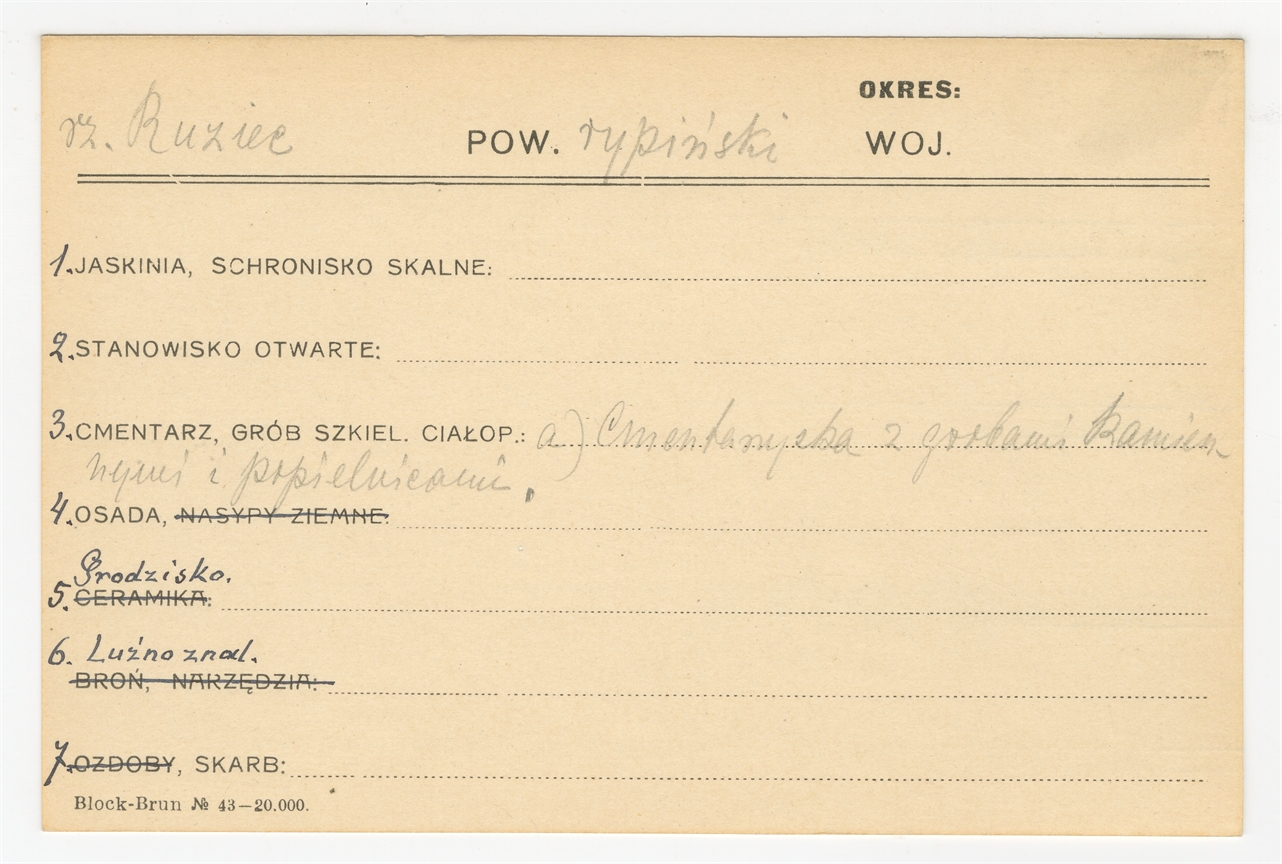 OKRES:
rz. Ruziec POW. rypiński WOJ.
1. JASKINIA, SCHRONISKO SKALNE:
2. STANOWISKO OTWARTE:
3. CMENTARZ, GRÓB SZKIEL. CIAŁOP.: a) Cmentarzyska z grobami kamien-
nymi i popielnicami.
4. OSADA, NASYPY ZIEMNE:
Grodzisko.
5. CERAMIKA:
6. Luźno znal.
BROŃ, NARZĘDZIA:
7. OZDOBY, SKARB:
Block-Brun № 43—20.000.